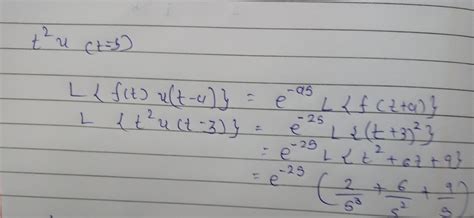 t²u (t-3)
L { f(t) u(t-a)} = e^-as L { f (t+a)}
L { t² u (t-3)} = e^-2s L { (t+3)²}
= e^-2s L { t² + 6t + 9}
= e^-2s ( 2/s³ + 6/s² + 9/s )